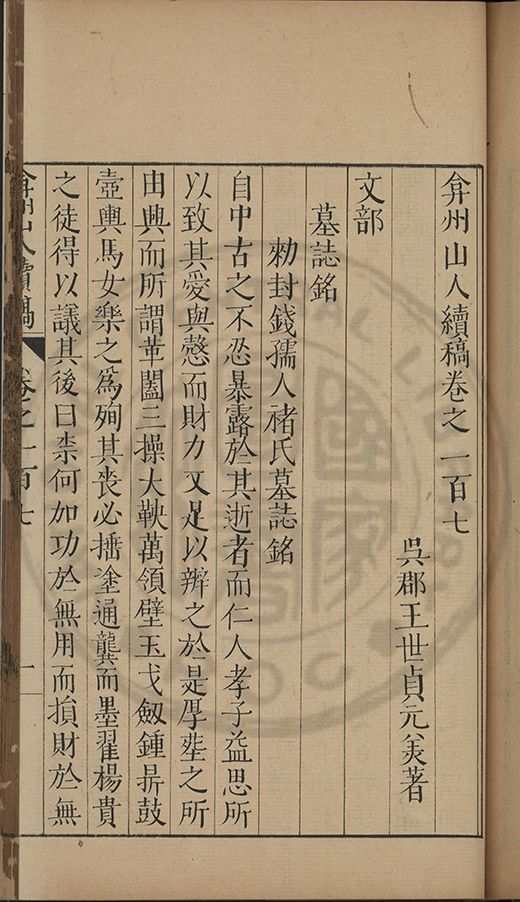 弇州山人續稿卷之一百七
吳郡王世貞元美著
文部
墓誌銘
勑封錢孺人褚氏墓誌銘
自中古之不忍暴露於其逝者而仁人孝子益思所
以致其愛與慤而財力又足以辦之於是厚塟之所
由興而所謂革闠三操大鞅萬領璧玉戈劒鍾鼎鼓
壺輿馬女樂之為殉其喪必捶塗通龔而墨翟楊貴
之徒得以議其後曰柰何加功於無用而損財於無
弇州山人續稿
卷之一百七
一